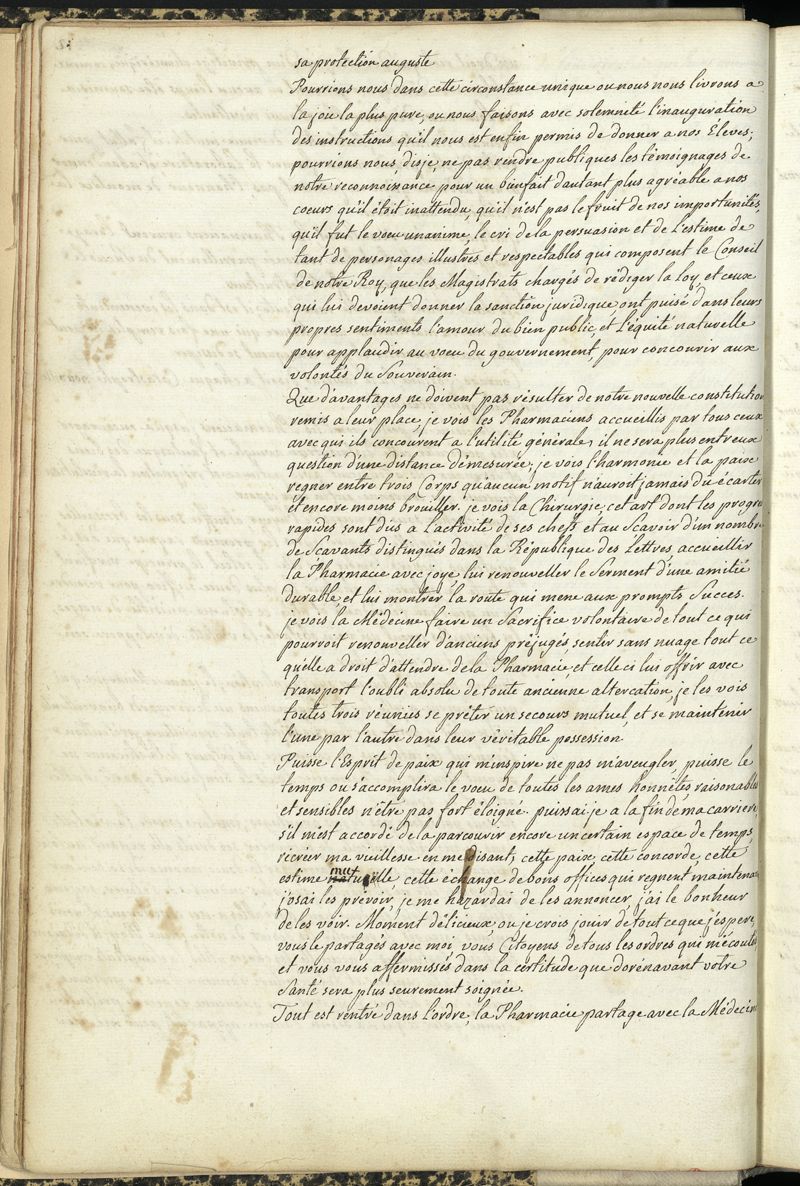 sa protection auguste
Pourrions nous dans cette circonstance unique ou nous nous livrons a
la joie la plus pure, ou nous faisons avec solemneté l'inauguration
des instructions qu'il nous est enfin permis de donner a nos Éleves;
pourrions nous, disje, ne pas rendre publiques les témoignages de
notre reconnoissance pour un bienfait d'autant plus agréable a nos
coeurs qu'il étoit inattendu, qu'il n'est pas le fruit de nos importunités,
qu'il fut le voeu unanime, le cri de la persuasion et de L'estime de
tant de personages illustres et respectables qui composent le Conseil
de notre Roy, que les Magistrats chargés de rédiger la loy, et ceux
qui lui devoient donner la sanction juridique, ont puisé dans leurs
propres sentiments l'amour du bien public, et L'équité naturelle
pour applaudir au voeu du gouvernement, pour concourir aux
volontés du Souverain.
Que d'avantages ne doivent pas résulter de notre nouvelle constitution
remis a leur place, je vois les Pharmaciens accueillis par tous ceux
avec qui ils concourent a l'utilité générale, il ne sera plus entreux
question d'une distance démesurée, je vois l'harmonie et la paix
regner entre trois Corps qu'aucun motif n'auroit jamais du écarter
et encore moins brouiller. je vois la Chirurgie, cet art dont les progrè
rapides sont dus a L'activité de ses chefs et au Scavoir d'un nombre
de Scavants distingués dans la République des Lettres, accueillir
la Pharmacie avec joye, lui renouveller le Serment d'une amitié
durable, et lui montrer la route qui mene aux prompts Succes.
je vois la Médécine faire un Sacrifice volontaire de tout ce qui
pourroit renouveller d'anciens préjugés, sentir sans nuage tout ce
qu'elle a droit d'attendre de la Pharmacie, et celle ci lui offrir avec
transport l'oubli absolu de toute ancienne altercation, je les vois
toutes trois réunies se prêter un secours mutuel, et se maintenir
l'une par l'autre dans leur véritable possession.
Puisse l'Esprit de paix qui m'inspire ne pas m'aveugler, puisse le
temps ou s'accomplira le voeu de toutes les ames honnêtes, raisonables
et sensibles n'être pas fort éloigné. puissai je a la fin de ma carriere,
s'il m'est accordé de la parcourir encore un certain espace de temps,
récréer ma vieillesse en me disant, cette paix, cette concorde, cette
estime mutuelle cette échange de bons offices qui regnent maintenant
j'osai les prévoir, je me hazardai de les annoncer, j'ai le bonheur
de les voir. Moment délicieux, ou je crois jouir de tout ce que j'espere,
vous le partagés avec moi, vous Citoyens de tous les ordres qui m'écoutés
et vous vous affermissés dans la certitude que dorénavant votre
Santé sera plus seurement soignée.
Tout est rentré dans L'ordre, la Pharmacie partage avec la Médécine